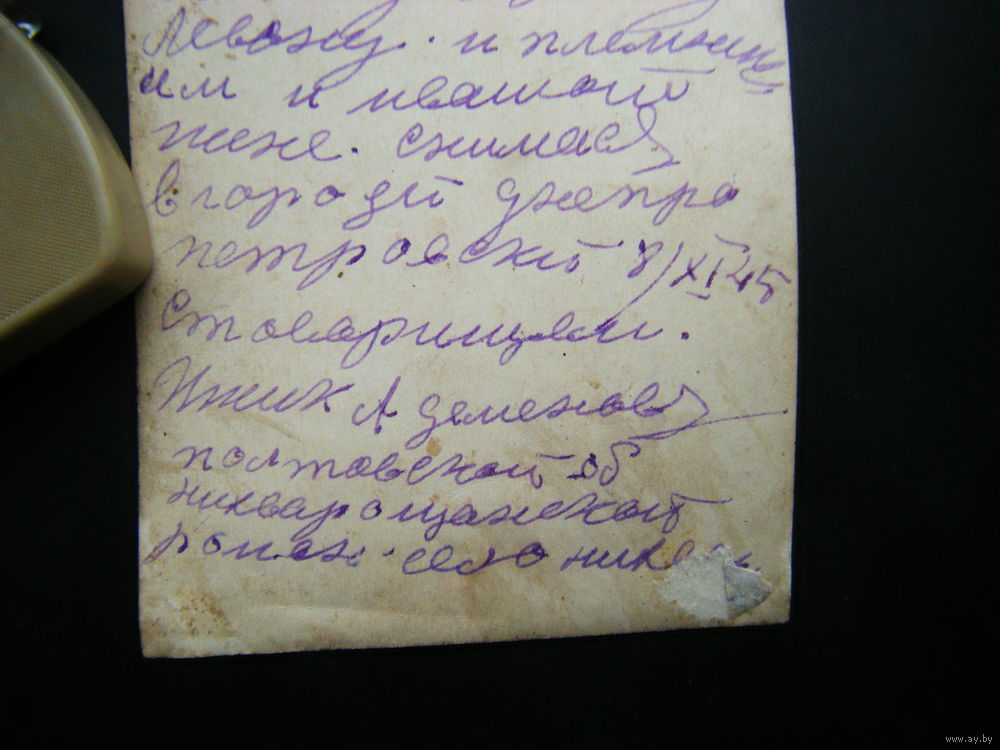 Левону. и племянни
им и ивашой
жене. снимася
вгородй днепро
петровскй 8/XI 45
стоварищем.
Ижик А деменов
полтовской об
никварощанской
район. село
www.ay.by